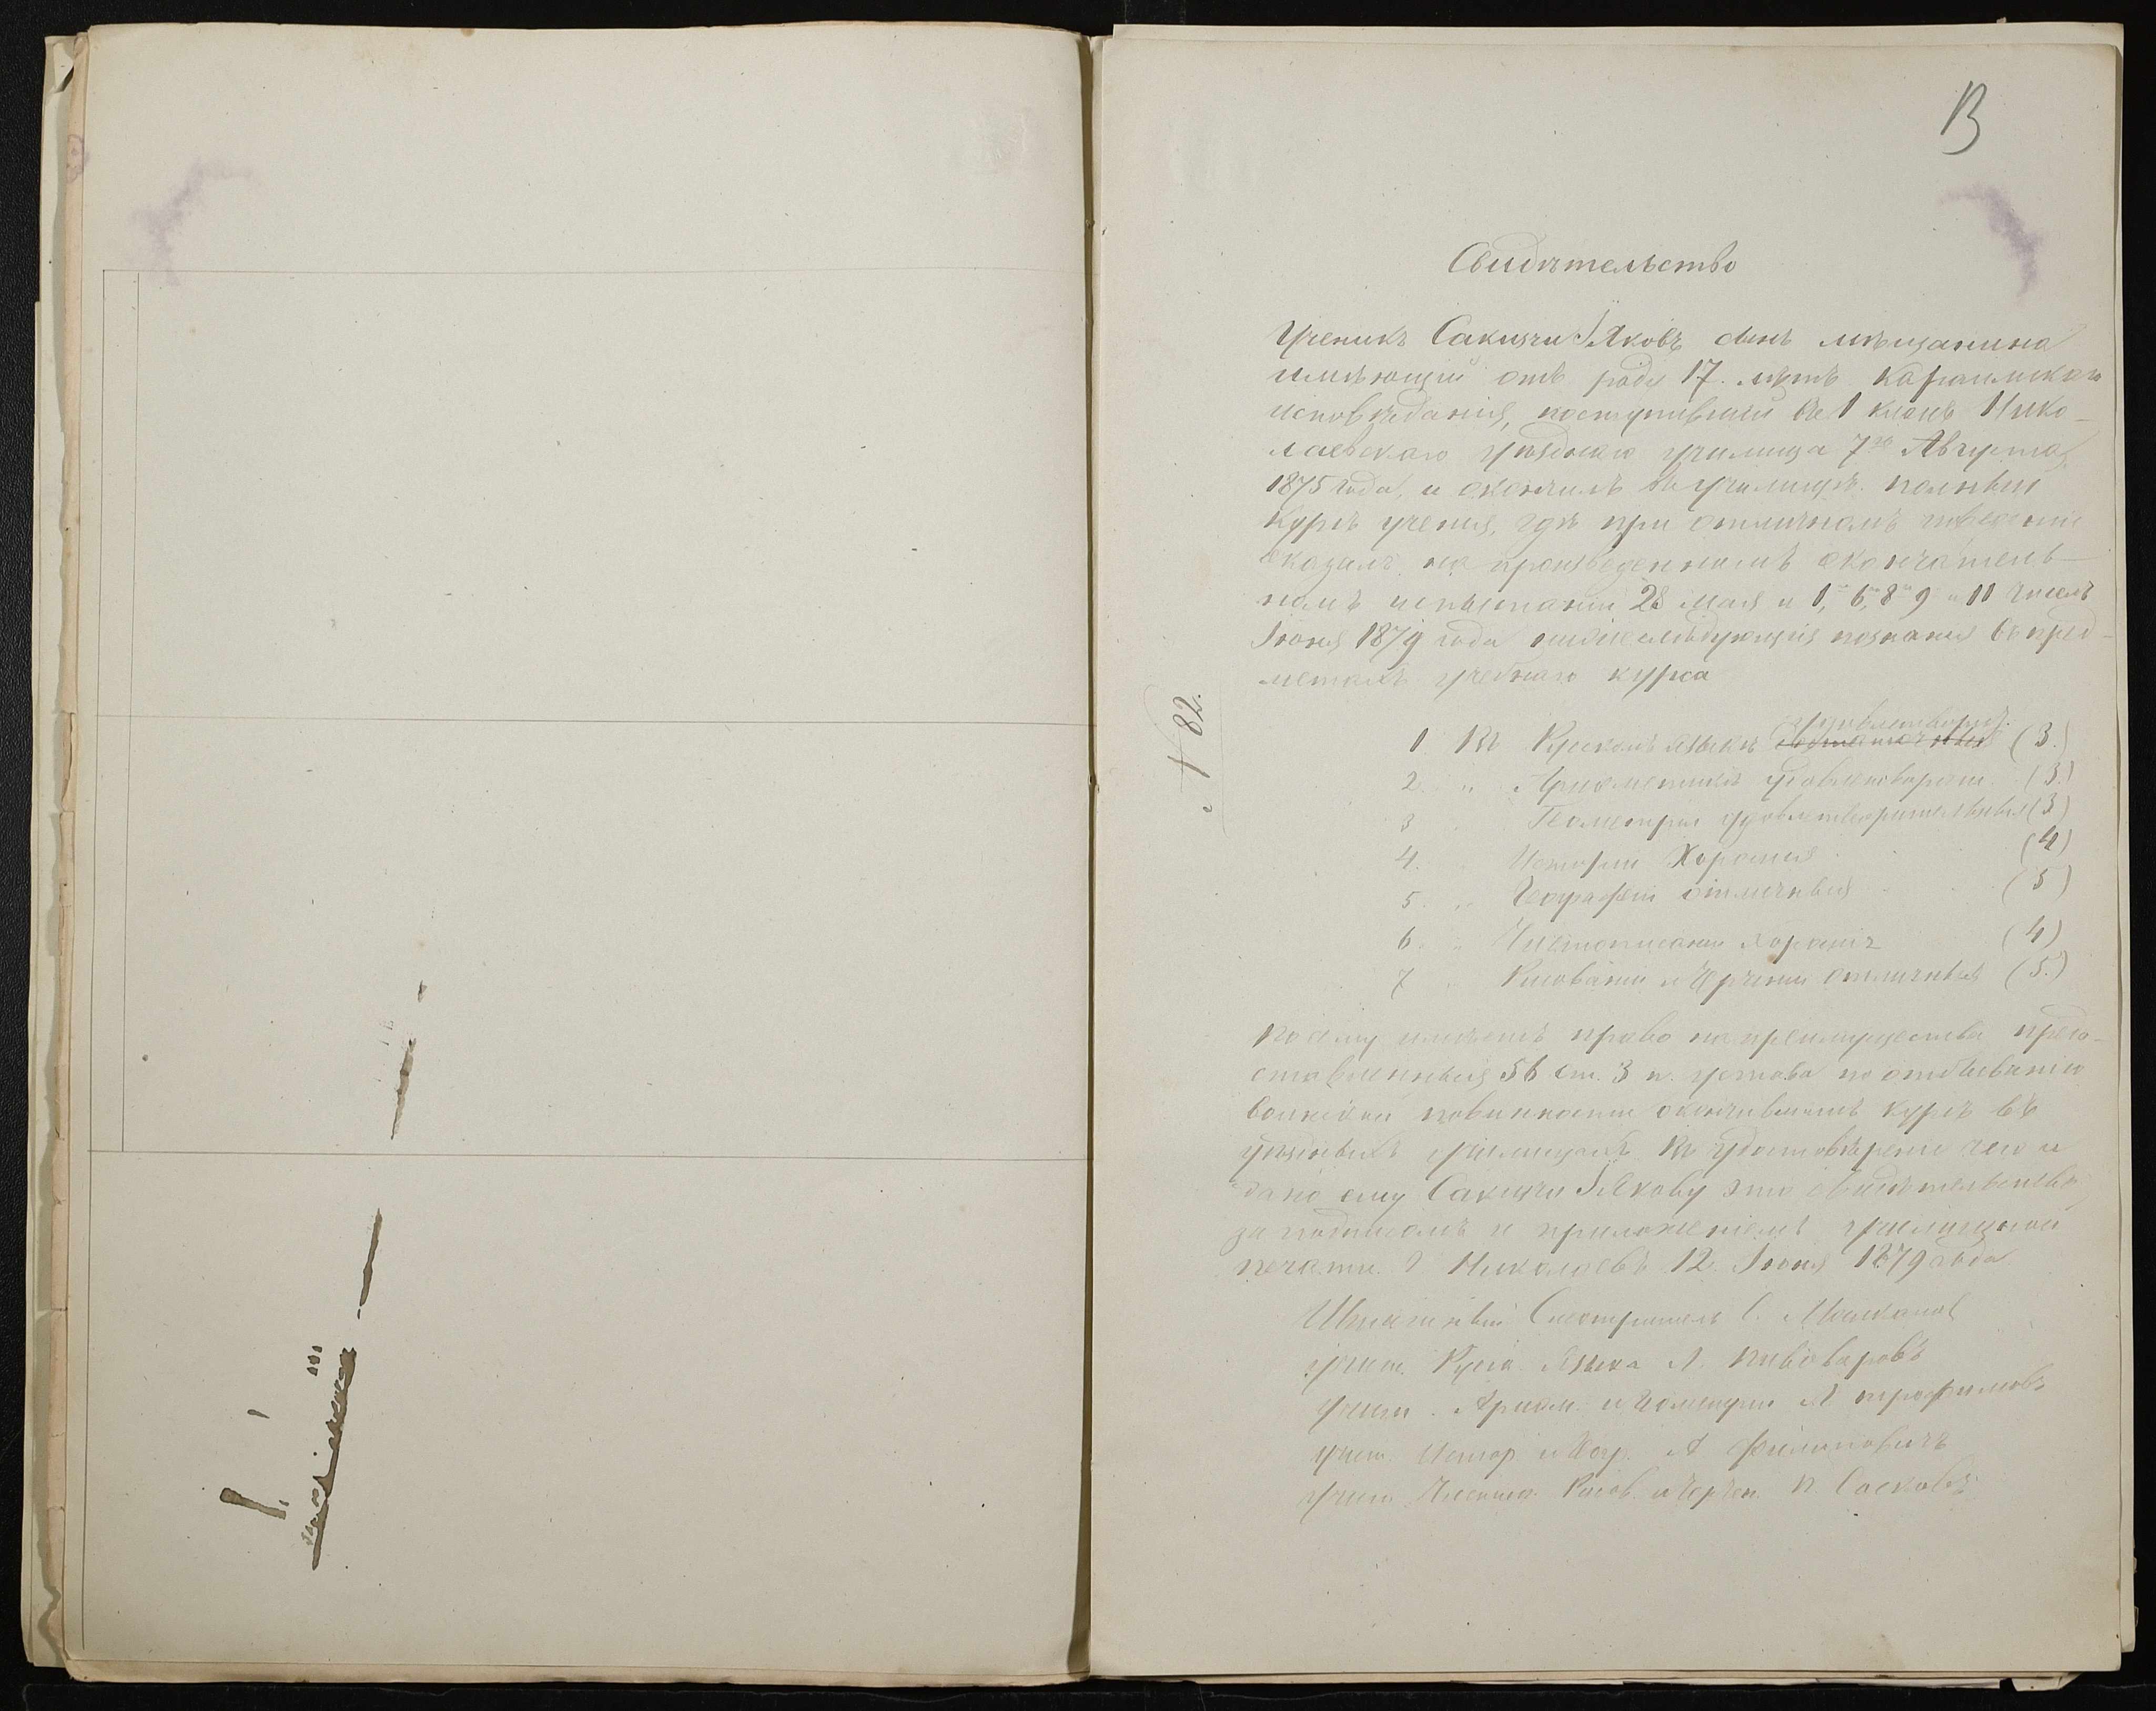 13
Свидѣтельство
Ученикъ Сакизчи Яковъ сынъ мѣщанина
имѣющій отъ роду 17. лѣтъ караимскаго
исповѣданія, поступившій въ 1 классъ Нико-
лаевскаго уѣзднаго училища 7го Августа
1875 года, и окончилъ въ училищѣ полный
курсъ ученія, гдѣ при отличномъ поведеніи
оказалъ на произведенномъ окончатель-
номъ испытаніи 28 мая и 1, 6, 8 9 и 11 чиселъ
Іюня 1879 года нижеслѣдующія познанія въ пред-
метахъ учебнаго курса
№ 82.
удовлетворит.
1 Въ Русскомъ языкѣ (3.)
2. " Ариѳметикѣ удовлетворит (3.)
3 " Геометріи удовлетворительныя (3)
4. " Исторіи Хорошія (4)
5. " Географіи отличныя (5)
6. " Чистописаніи хорошія (4)
7 " Рисованіи и Черченіи отличныя (5.)
посему имѣетъ право на преимущества предо-
ставленныя 56 ст. 3 п. устава по отбыванію
воинской повинности окончившимъ курсъ въ
уѣздныхъ училищахъ Въ удостовѣреніи чего и
дано ему Сакизчи Якову это свидѣтельство
за подписомъ и приложеніемъ училищной
печати. Г Николаевъ 12. Іюня 1879 года
Штатный Смотритель
учит. Русск. языка Л. Пивоваровъ
учит. Ариѳм. и Геометріи Трофимовъ
учит. Истор и Геогр. А Филиповичъ
учит Чистопис. Рисов. и Черчен.